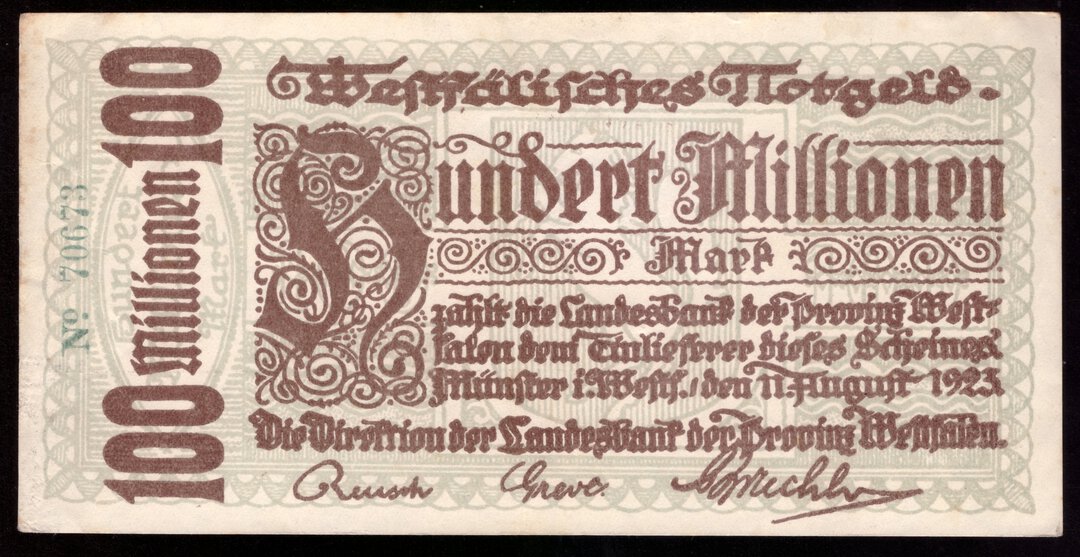 Westfälisches Notgeld.
Hundert Millionen
Mark
zahlt die Landesbank der Provinz West-
falen dem Einlieferer dieses Scheines.
Münster i. Westf., den 11. August 1923.
Die Direktion der Landesbank der Provinz Westfalen.
Reusch Greve
100 millionen 100
No 70673
Hundert
Mark